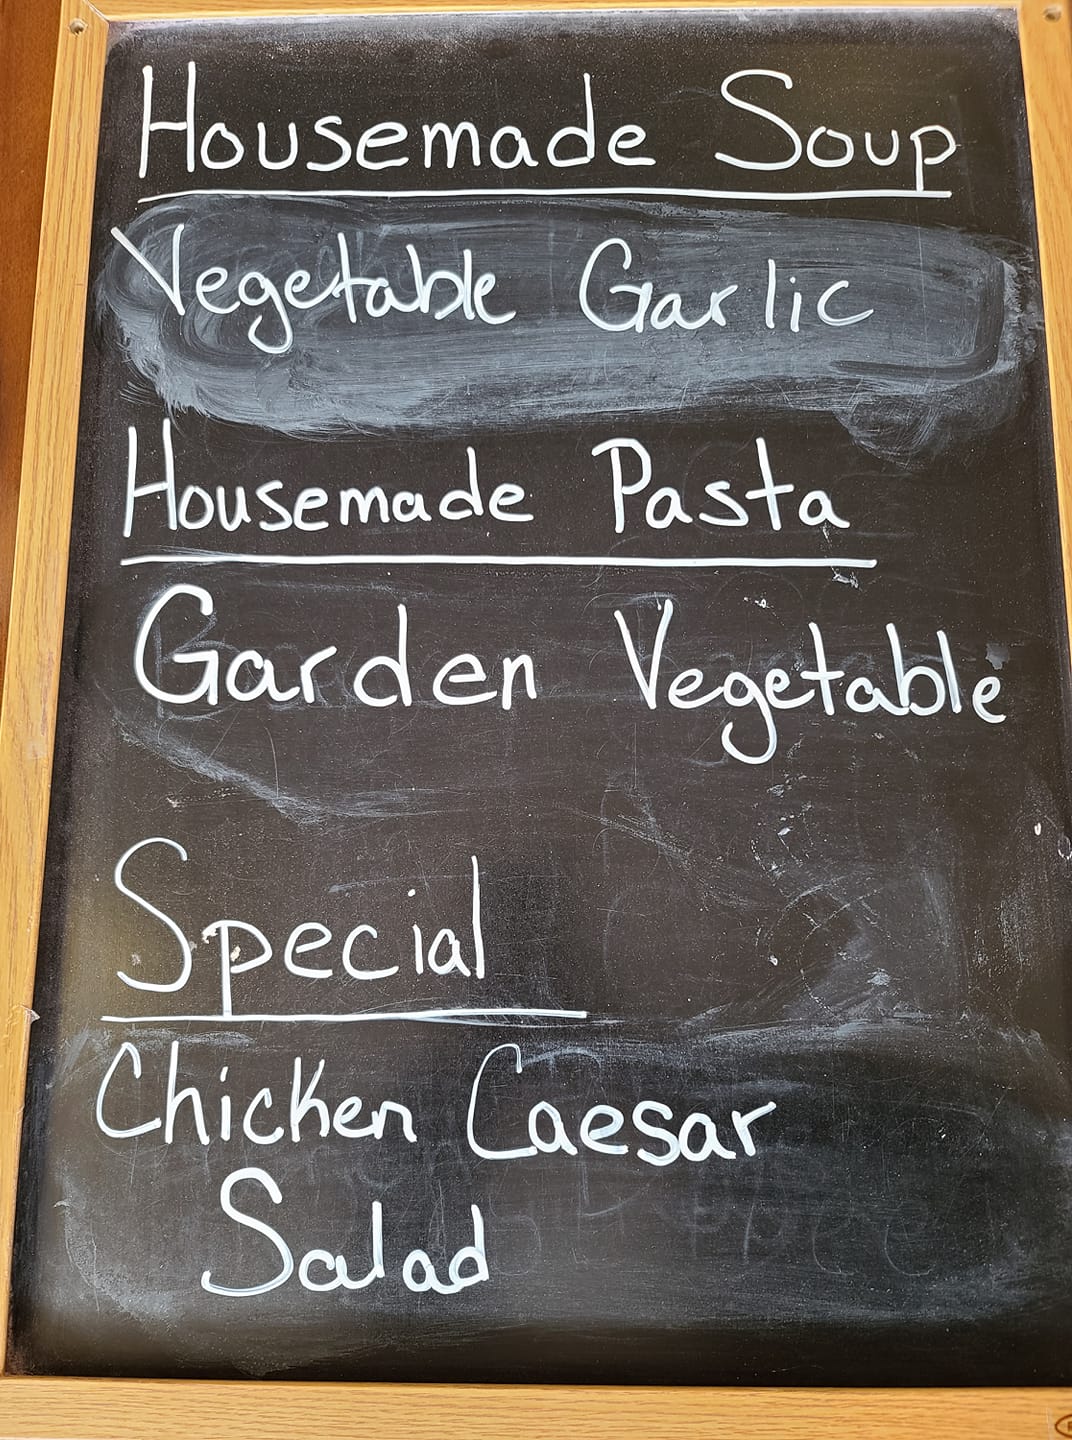 Housemade Soup
Vegetable Garlic
Housemade Pasta
Garden Vegetable
Special
Chicken Caesar
Salad